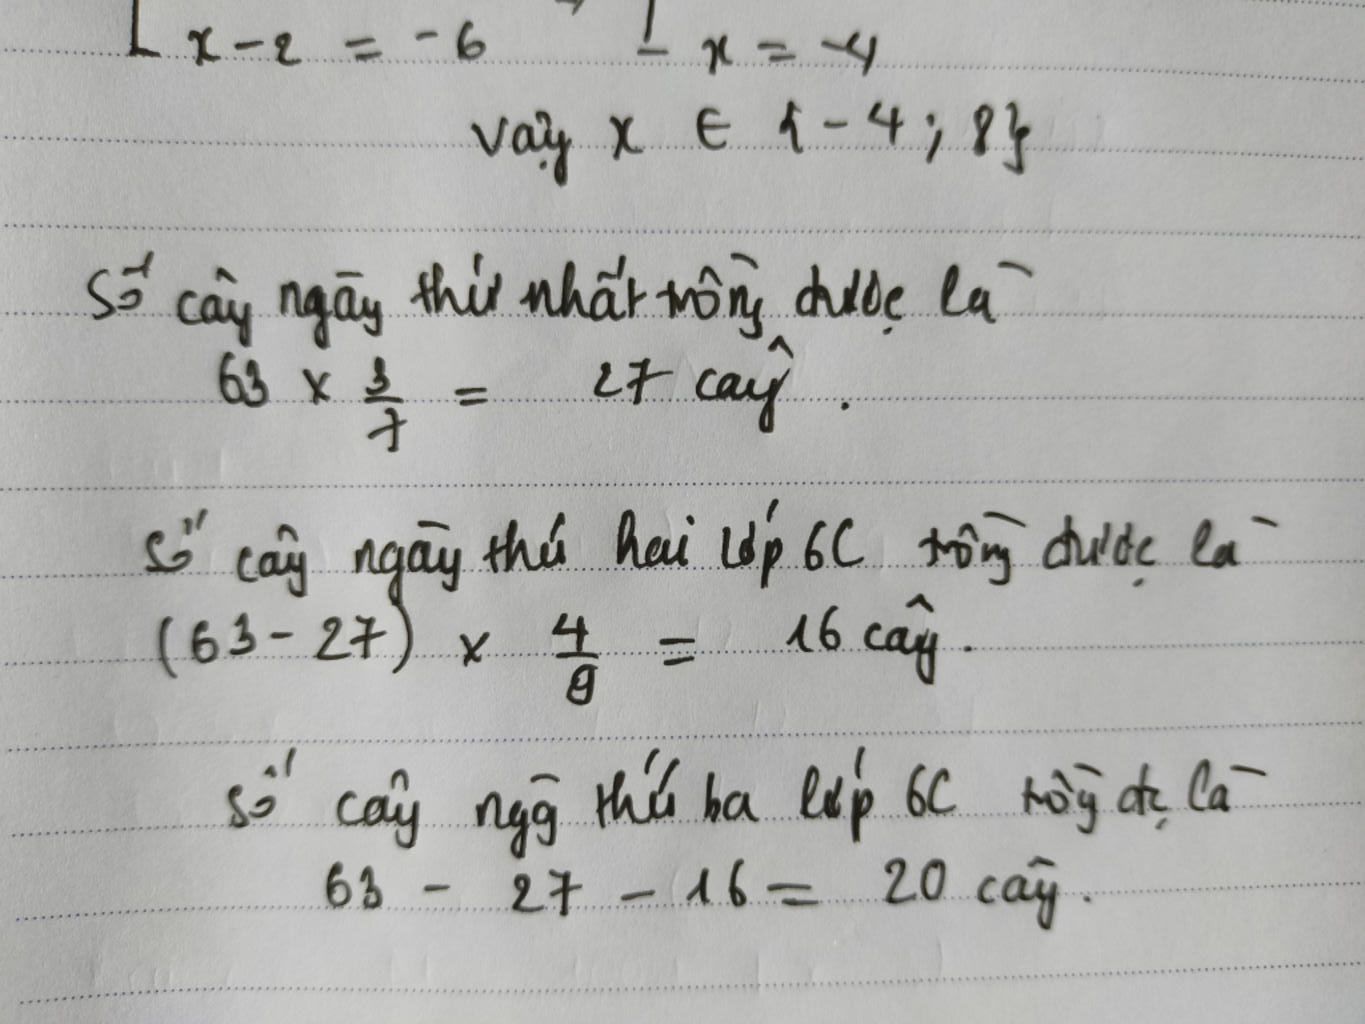 [ x - 2 = -6 [ x = -4
Vậy x ∈ {-4; 8}
Số cây ngày thứ nhất trồng được là
63 x 3/7 = 27 cây.
Số cây ngày thứ hai lớp 6C trồng được là
(63 - 27) x 4/9 = 16 cây.
Số cây ngày thứ ba lớp 6C trồng đc là
63 - 27 - 16 = 20 cây.